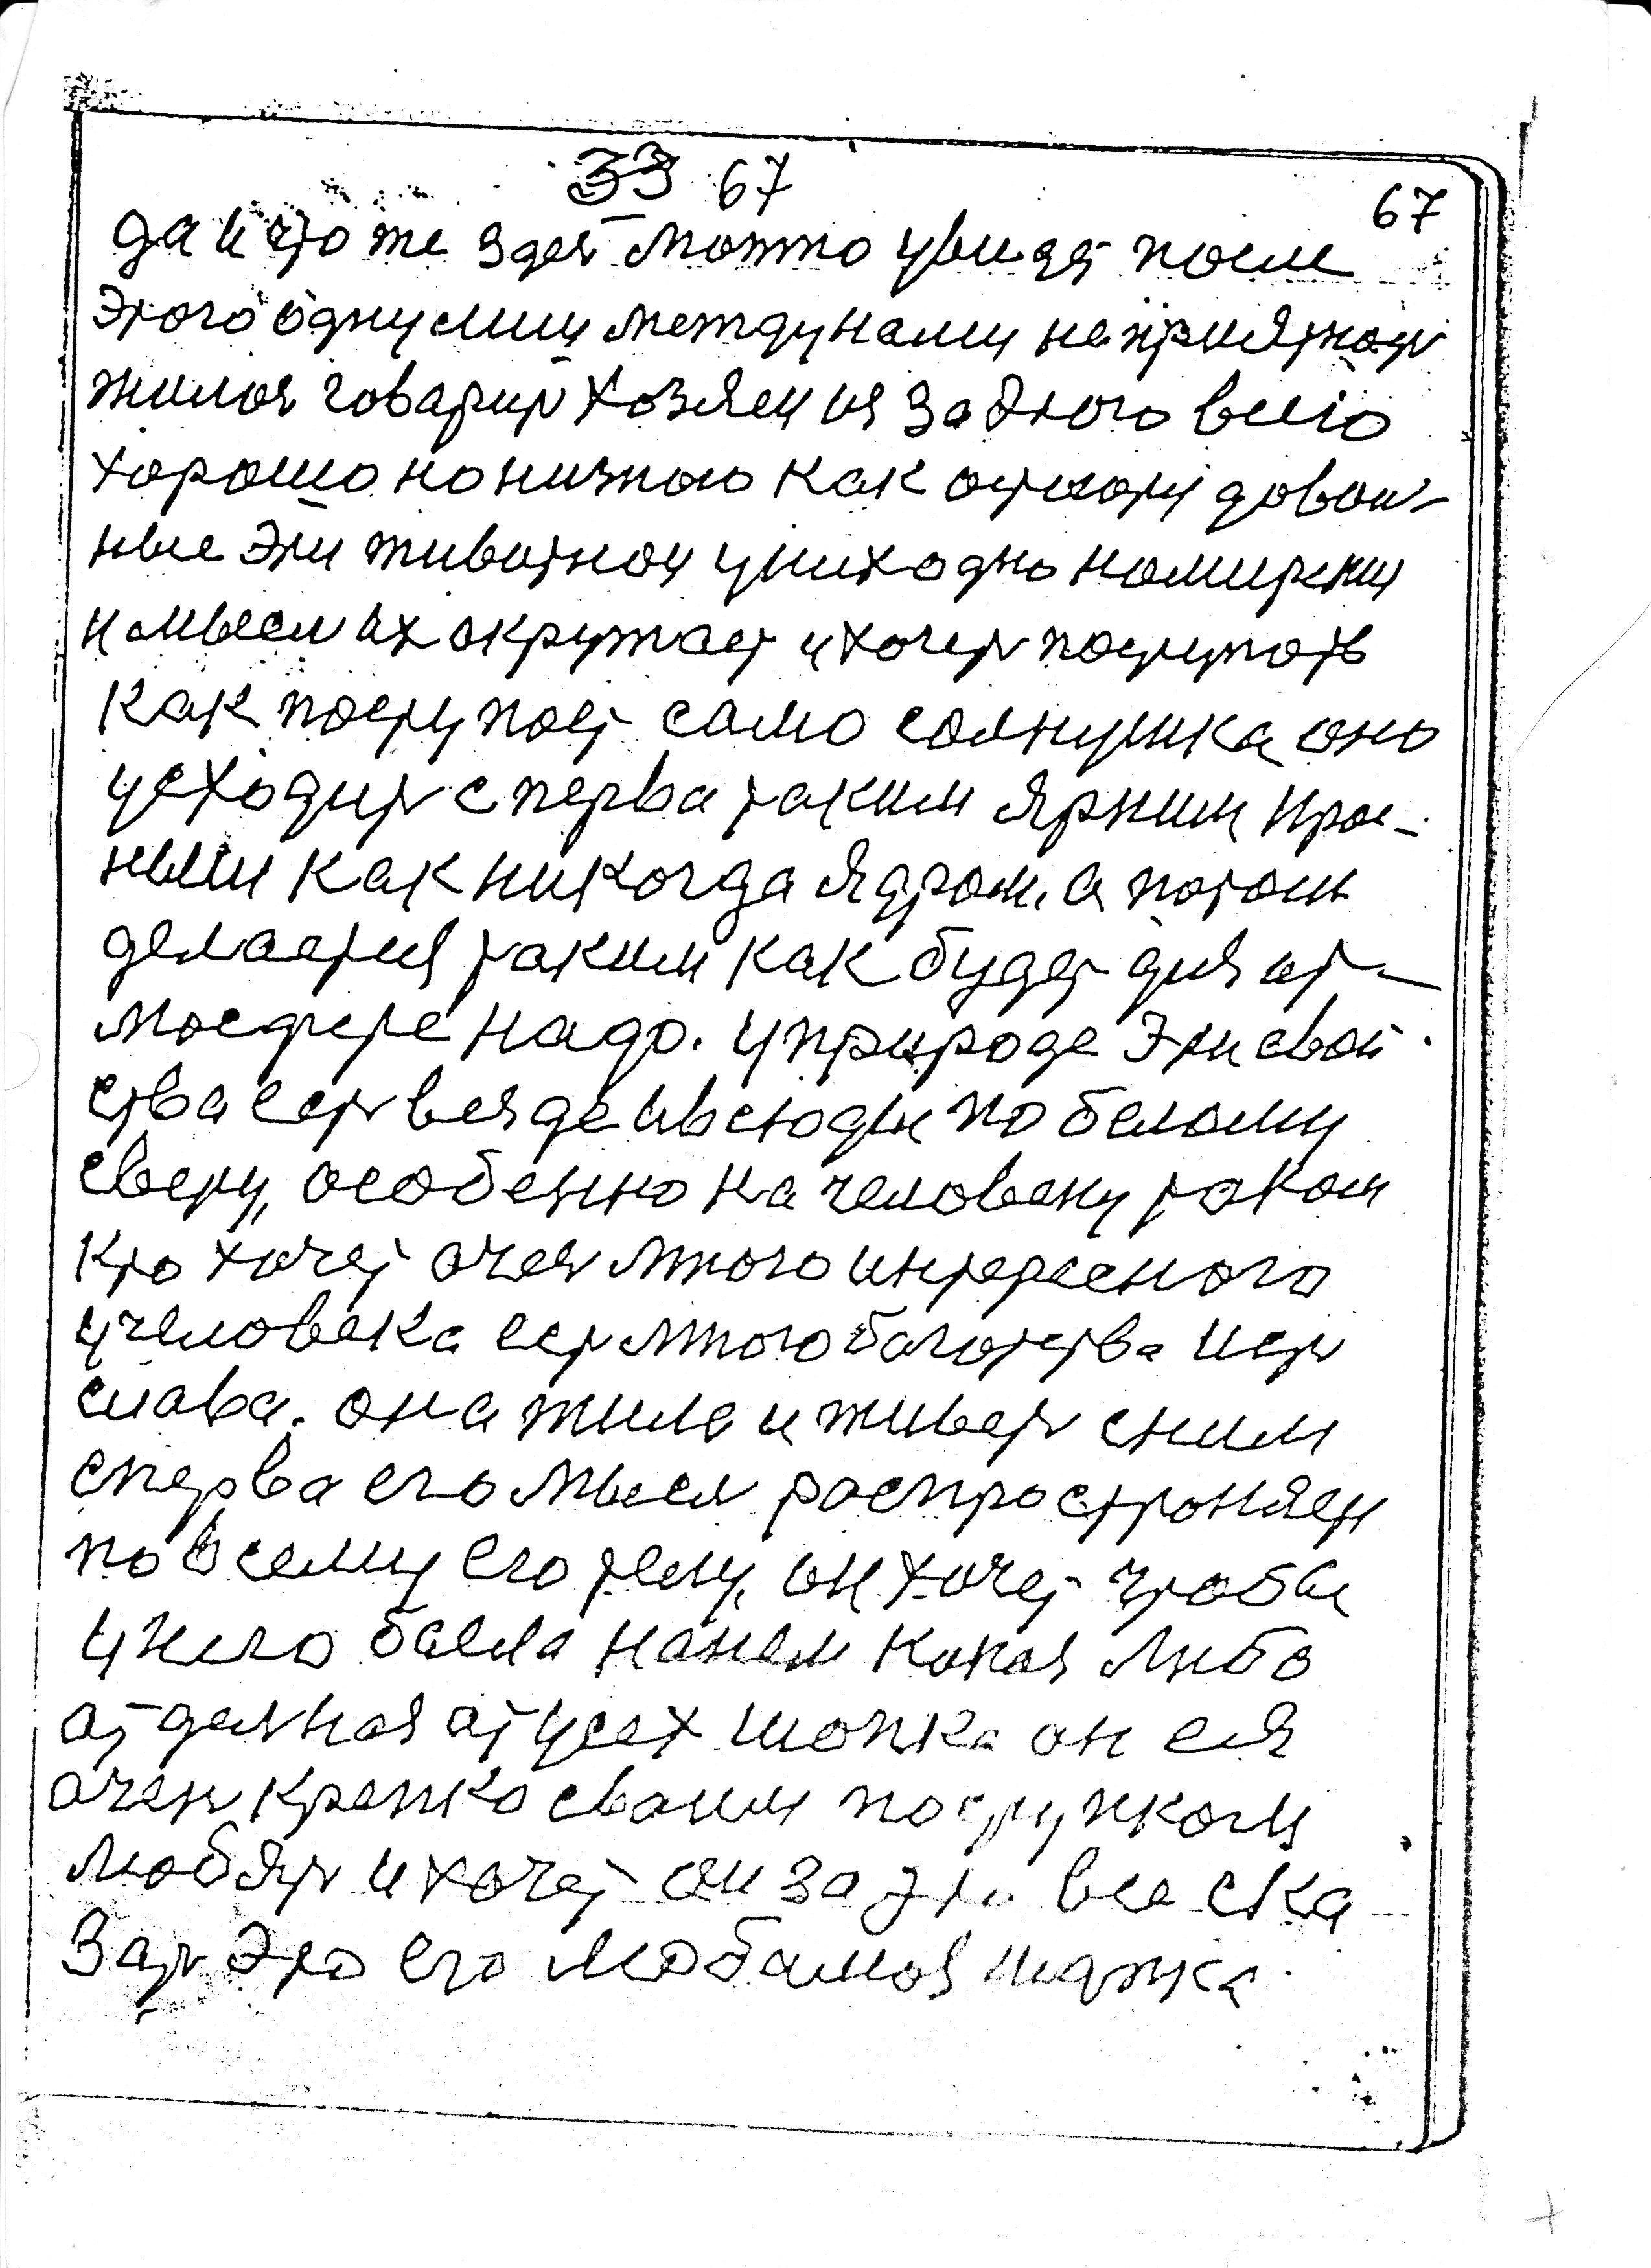 33 67
67
да и что же здесь можно увидет после
этого одну лиш между нами неприятност
жилая говарит хозяен ия за этого всиго
хорошо но низнаю как астисат довол-
ные эти живатнаи у них одно намирени
и мысли их окружает и хочет поступать
как поступает само солнушка оно
усходит сперва таким ярким крас-
ным как никогда ядром. а потом
делается таким как будет для ат-
мосфере надо. у природе эти свой
ства есть везде и всюды по белому
свету, особенно на человеку таком
кто хочет очен много интересного
у человека ест много богатства и ест
слава. она жила и живет с ним
сперва его мысля распространяет
по всему его телу, он хочет чтобы
у него была на нем какая либо
атделная ат усех шапка он ея
очен крепко сваим поступком
любят и хочет он за эти все ска
зат это его любимая шапка.